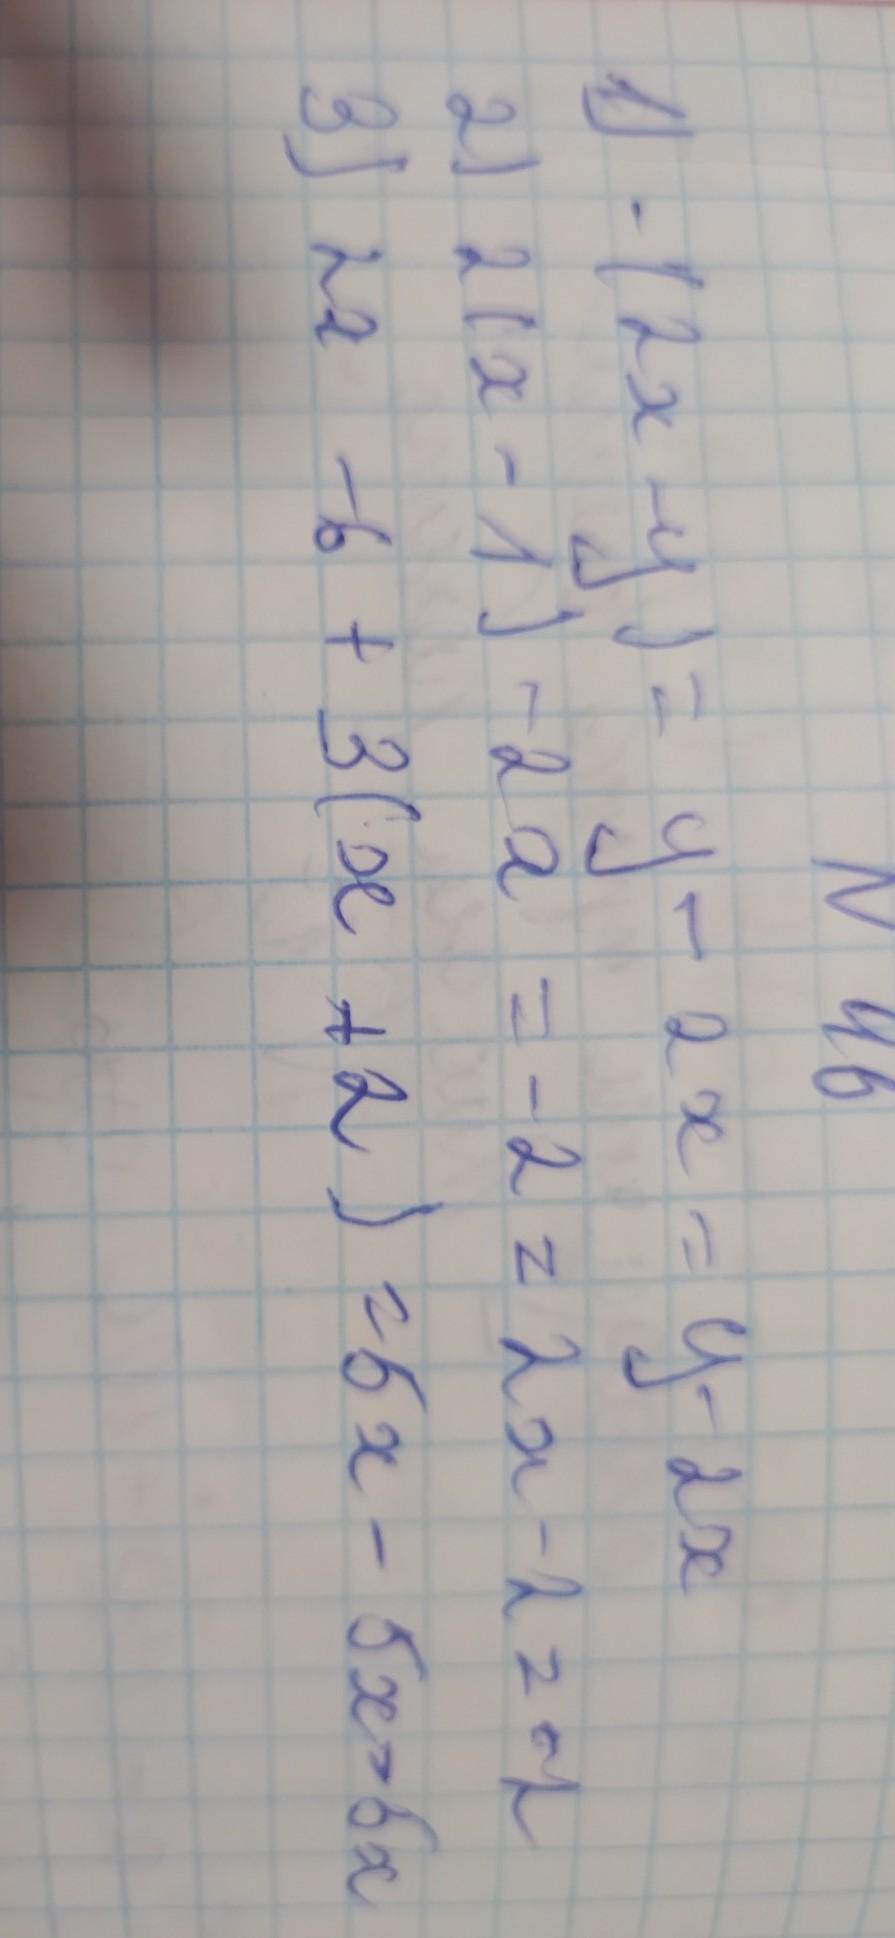 N 46
1) -(2x-y) = y - 2x = y - 2x
2) 2(x - 1) - 2x = -2 = 2x - 2 = -2
3) 2x - 6 + 3(x + 2) = 5x - 5x = 6x